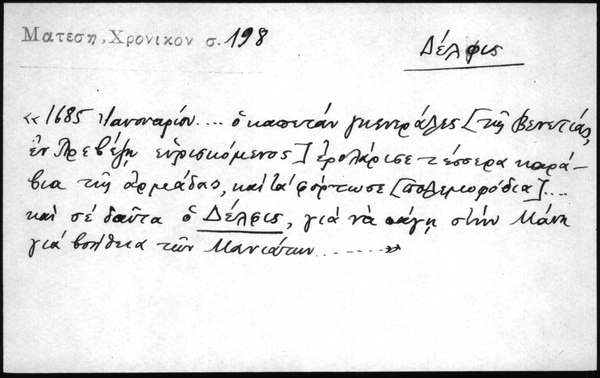 Ματεση, Χρονικον σ. 198
Δέλφις
«1685 Ιανουαρίου.... ὁ καπετάν γκενεράλες [τῆς Βενετίας,
ἐν Πρεβέζῃ εὑρισκόμενος] ἐρολάρισε τέσσερα καρά-
βια τῆς ἀρμάδας, καὶ τὰ φόρτωσε [πολεμοφόδια]....
καὶ σέ δαῦτα ὁ Δέλφις, γιά νὰ πάγῃ στὴν Μάνη
γιά βοήθεια τῶν Μανιάτων.......»